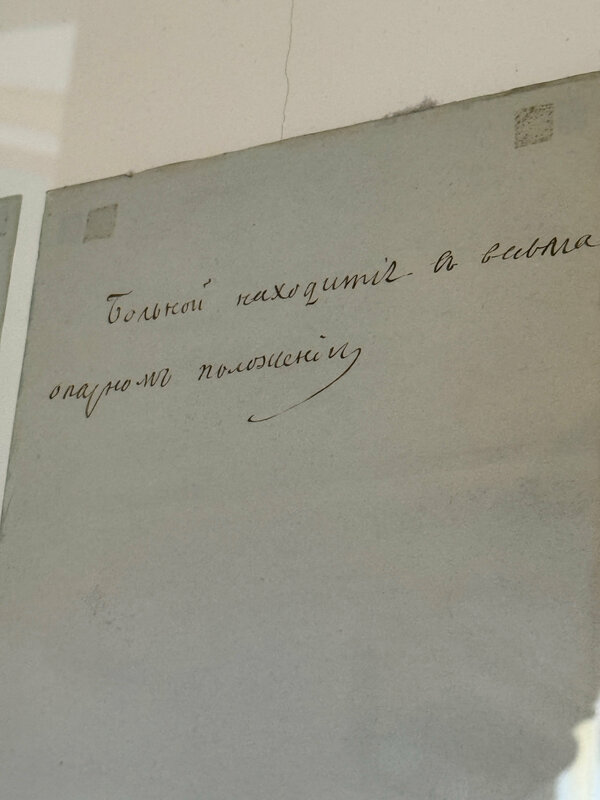 Больной находится въ весьма
опасномъ положеніи